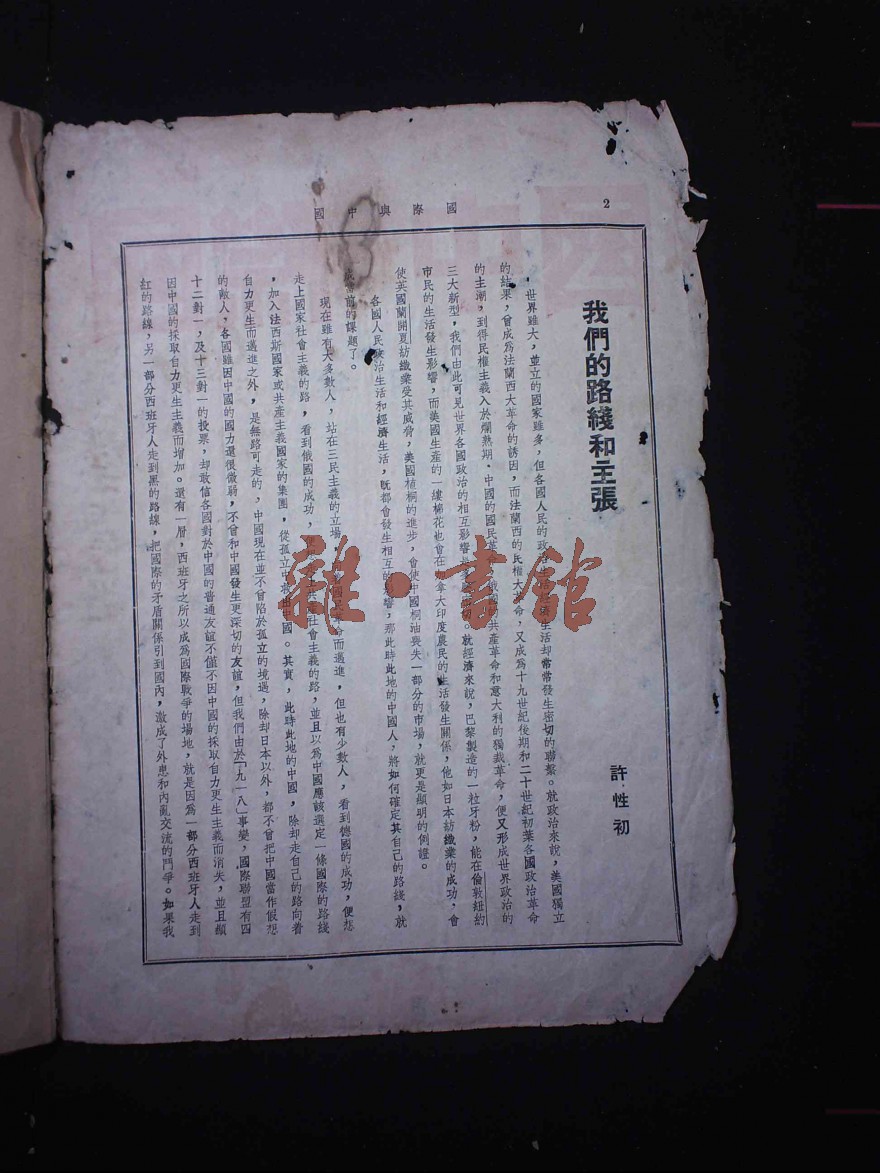 2
國際與中國
我們的路綫和主張
許性初
世界雖大，並立的國家雖多，但各國人民的政 生活却常常發生密切的聯繫。就政治來說，美國獨立
的結果，曾成爲法蘭西大革命的誘因，而法蘭西的民權大革命，又成爲十九世紀後期和二十世紀初葉各國政治革命
的主潮，到得民權主義入於爛熟期，中國的國民革 俄 共產革命和意大利的獨裁革命，便又形成世界政治的
三大新型，我們由此可見世界各國政治的相互影響 切。就經濟來說，巴黎製造的一粒牙粉，能在倫敦紐約
市民的生活發生影響，而美國生產的一縷棉花也會在 拿大印度農民的生活發生關係，他如日本紡織業的成功，會
使英國蘭開夏紡織業受其威脅，美國植桐的進步，會使中國桐油喪失一部分的市場，就更是顯明的例證。
各國人民政治生活和經濟生活，既都會發生相互的影響，那此時此地的中國人，將如何確定其自己的路綫，就
成當前的課題了。
現在雖有大多數人，站在三民主義的立場 國民革命而邁進，但也有少數人，看到德國的成功，便想
走上國家社會主義的路，看到俄國的成功， 社會主義的路，並且以爲中國應該選定一條國際的路綫
，加入法西斯國家或共產主義國家的集團，從孤立中救出中國。其實，此時此地的中國，除却走自己的路向着
自力更生而邁進之外，是無路可走的，中國現在並不曾陷於孤立的境遇，除却日本以外，都不曾把中國當作假想
的敵人，各國雖因中國的國力還很微弱，不曾和中國發生更深切的友誼，但我們由於「九一八」事變，國際聯盟有四
十二對一，及十三對一的投票，却敢信各國對於中國的普通友誼不僅不因中國的採取自力更生主義而消失，並且顯
因中國的採取自力更生主義而增加。還有一層，西班牙之所以成爲國際戰爭的場地，就是因爲一部分西班牙人走到
紅的路線，另一部分西班牙人走到黑的路線，把國際的矛盾關係引到國內，激成了外患和內亂交流的鬥爭。如果我
雜·書館